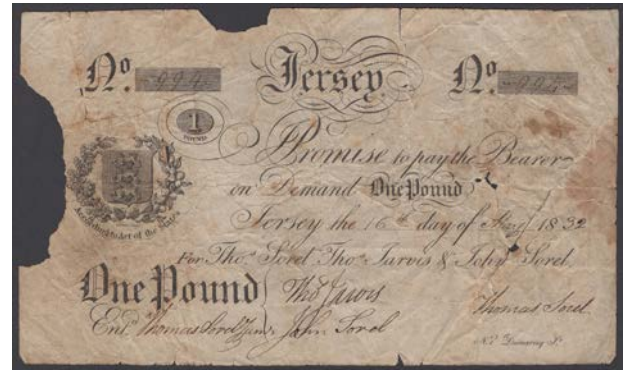 No. 994 Jersey No. 994
1 POUND
I Promise to pay the Bearer
on Demand One Pound
Jersey the 16th day of 1832
According to Act of the States
For Thos. Sorel Thos. Jarvis & John Sorel.
One Pound Tho Jarvis
Thomas Sorel
Entd. Thomas Sorel Junr. John Sorel